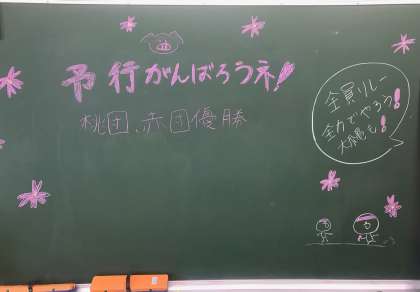 予行がんばろうネ!
桃団、赤団優勝
全員リレー
全力でやろう!